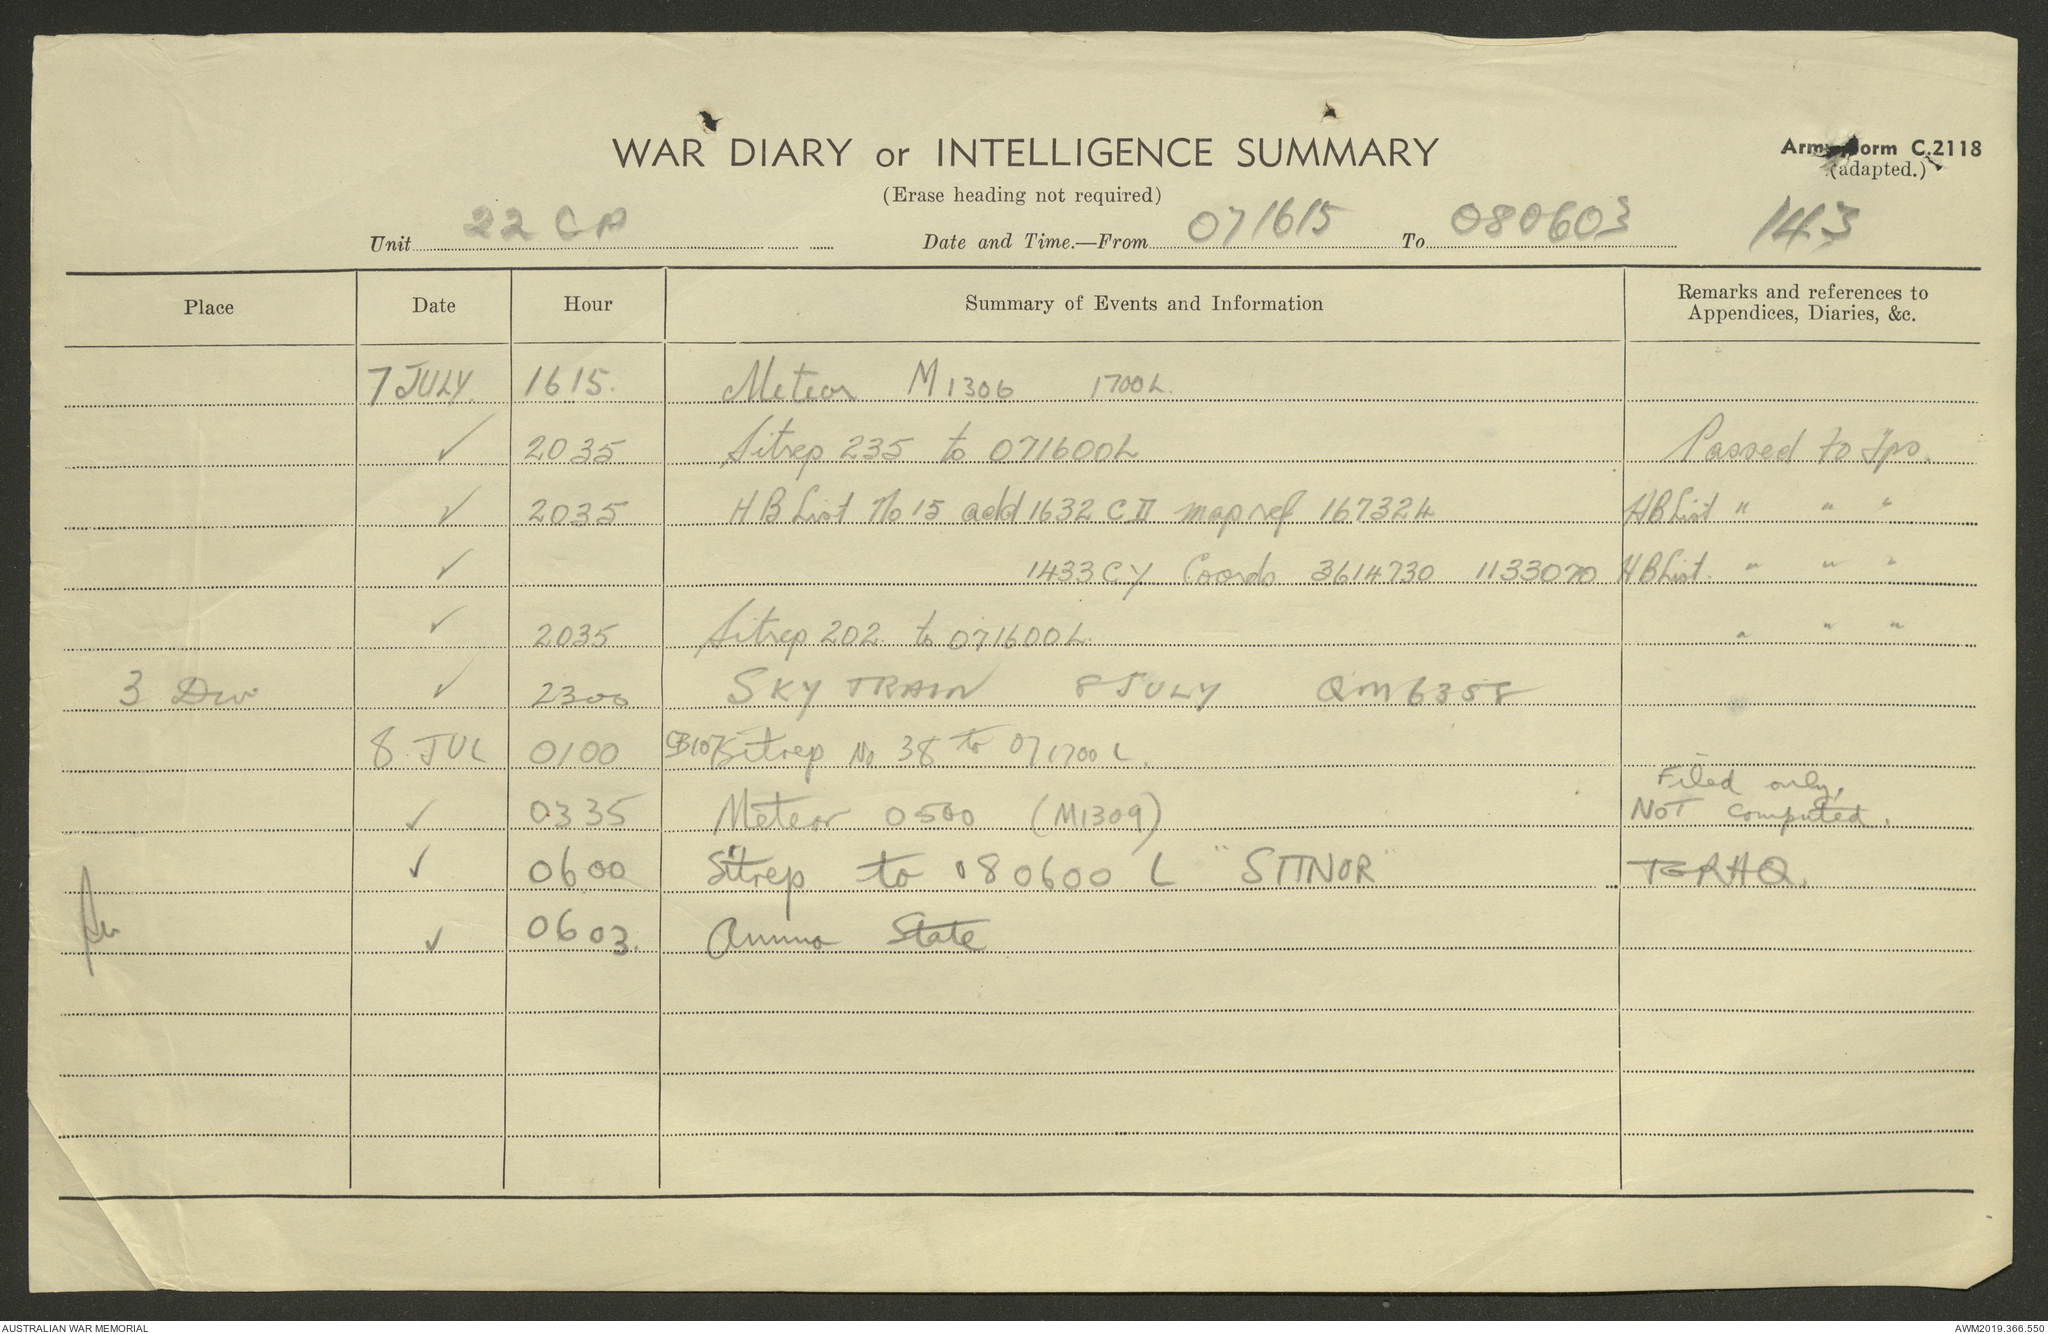 WAR DIARY or INTELLIGENCE SUMMARY
(Erase heading not required)
Army Form C.2118
(adapted.)
Unit 22 CP Date and Time.—From 071615 To 080603 143
Place Date Hour Summary of Events and Information Remarks and references to
Appendices, Diaries, &c.
7 JULY. 1615. Meteor M1306 1700L.
✓ 2035 Sitrep 235 to 071600L Passed to Tps.
✓ 2035 HB List No 15 add 1632 CII map ref 167324 HB List " " "
✓ 1433 CY Coords 3614730 1133070 HB List. " " "
✓ 2035 Sitrep 202 to 071600L. " " "
3 Div ✓ 2300 SKY TRAIN 8 JULY QM6358
8 JUL 0100 CB107 Sitrep No 38 to 071700L.
Filed only,
✓ 0335 Meteor 0500 (M1309) NOT computed.
✓ 0600 Sitrep to 080600 L "SITNOR" RHQ.
✓ 0603. Ammo State
AUSTRALIAN WAR MEMORIAL
AWM2019.366.550